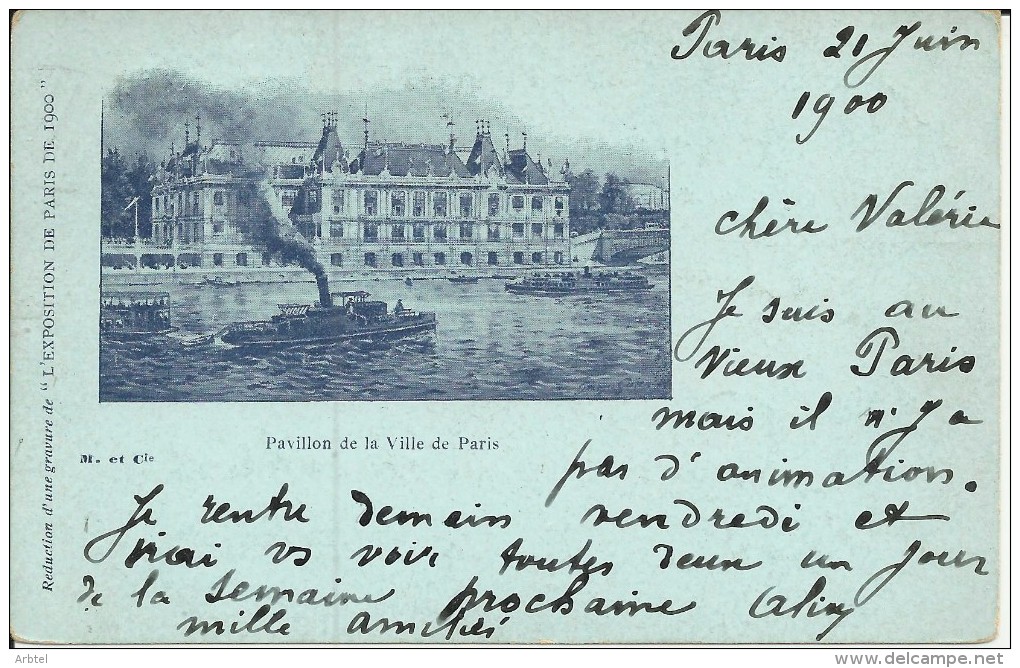 Paris 21 Juin
1900
chère Valérie
Je suis au
Vieux Paris
mais il n'y a
pas d'animation.
Je rentre demain vendredi et
irai vs voir toutes deux un jour
de la semaine prochaine
mille amitiés
Reduction d'une gravure de "L'EXPOSITION DE PARIS DE 1900"
Pavillon de la Ville de Paris
M. et Cie
Arbtel
www.delcampe.net